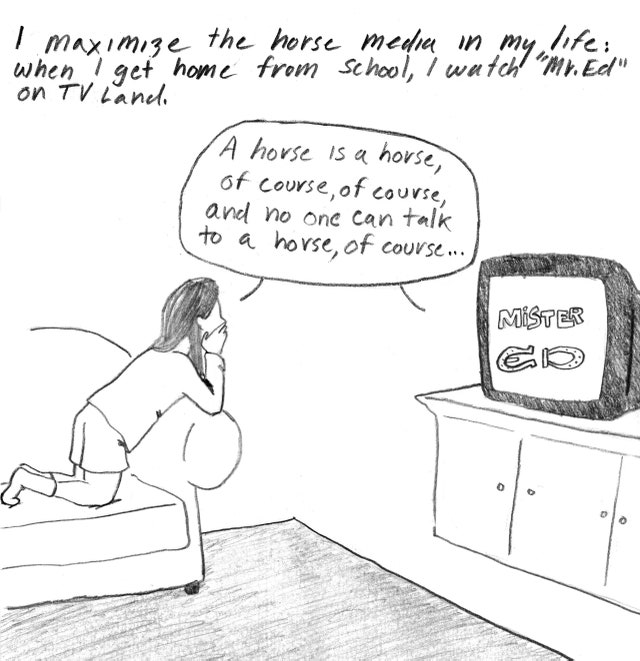 I maximize the horse media in my life:
when I get home from school, I watch "Mr. Ed"
on TV Land.
A horse is a horse,
of course, of course,
and no one can talk
to a horse, of course...
MiSTER
ED